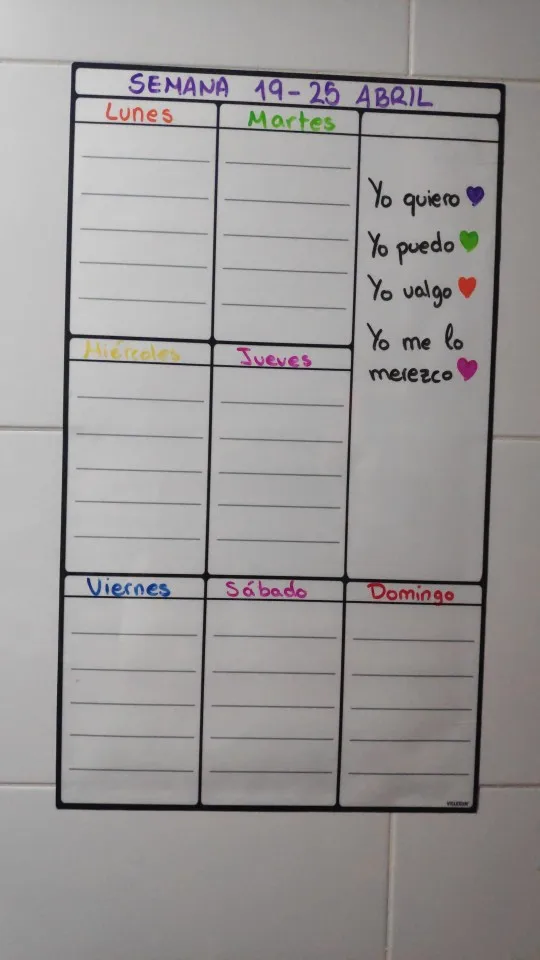 SEMANA 19-25 ABRIL
Lunes
Martes
Yo quiero
Yo puedo
Yo valgo
Yo me lo
merezco
Miércoles
Jueves
Viernes
Sábado
Domingo